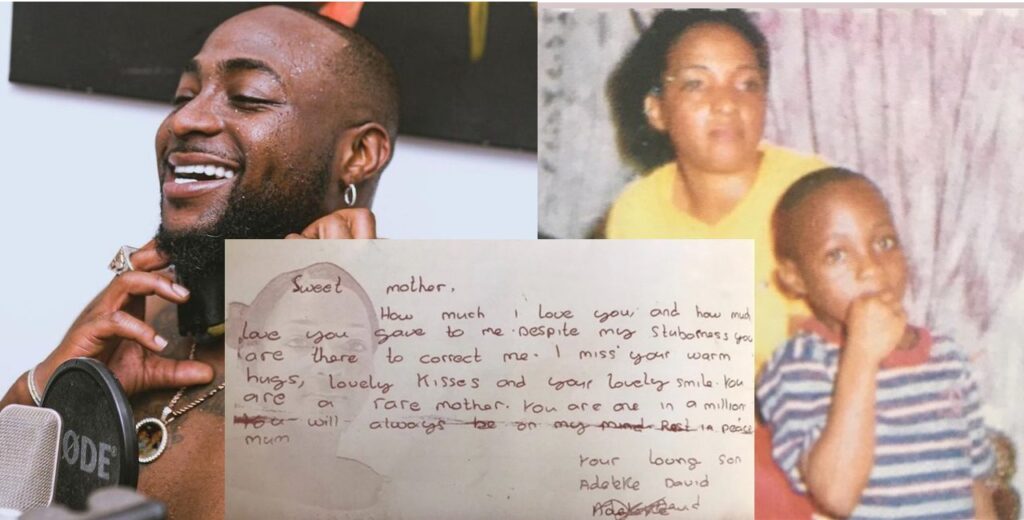 Sweet mother,
How much i love you and how much
love you gave to me. Despite my Stuborness you
are there to correct me. I miss your warm
hugs, lovely kisses and your lovely smile. You
are a rare mother. You are one in a million
You will always be on my mind. Rest in peace
mum
Your loving son
Adeleke David
RØDE